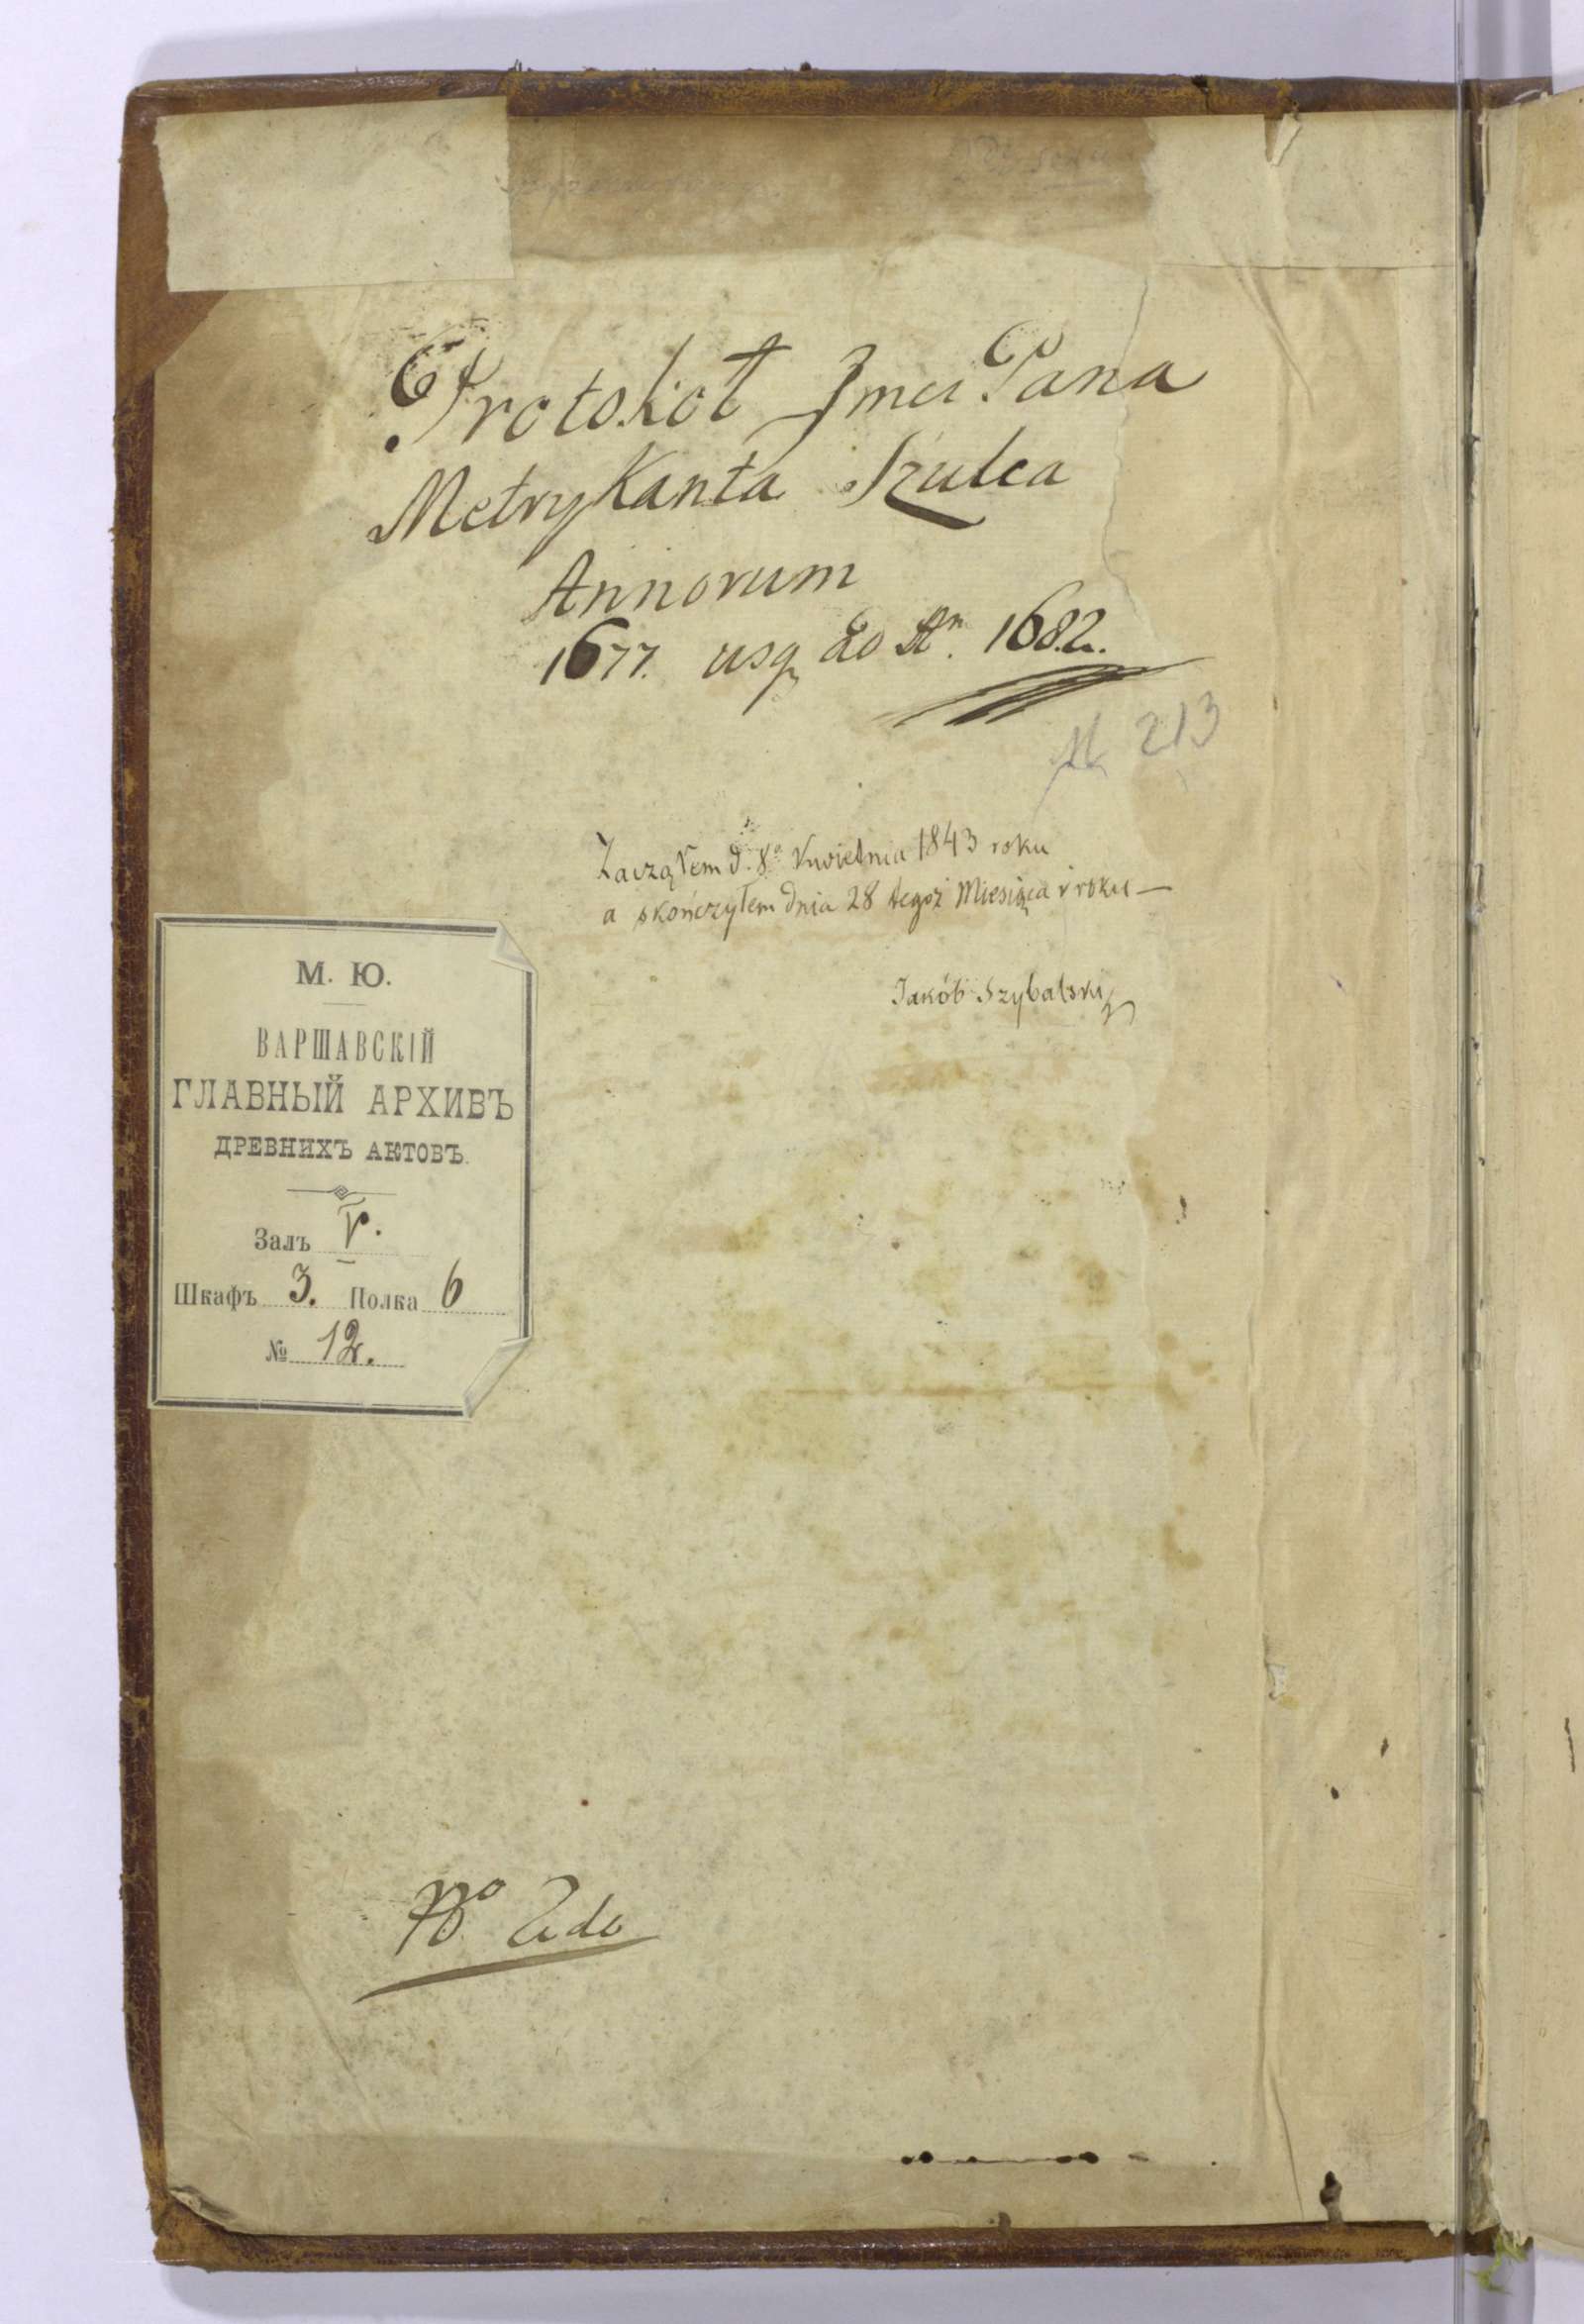 Protokoł Jmci Pana
Metrykanta Szulca
Annorum
1677. usq do An. 1682.
213
Zacząłem d. 8o Kwietnia 1843 roku
a skończyłem dnia 28 tegoż Miesiąca i roku —
Jakób Szybalski
М. Ю.
ВАРШАВСКІЙ
ГЛАВНЫЙ АРХИВЪ
ДРЕВНИХЪ АКТОВЪ.
Залъ V.
Шкафъ 3. Полка 6
№ 12.